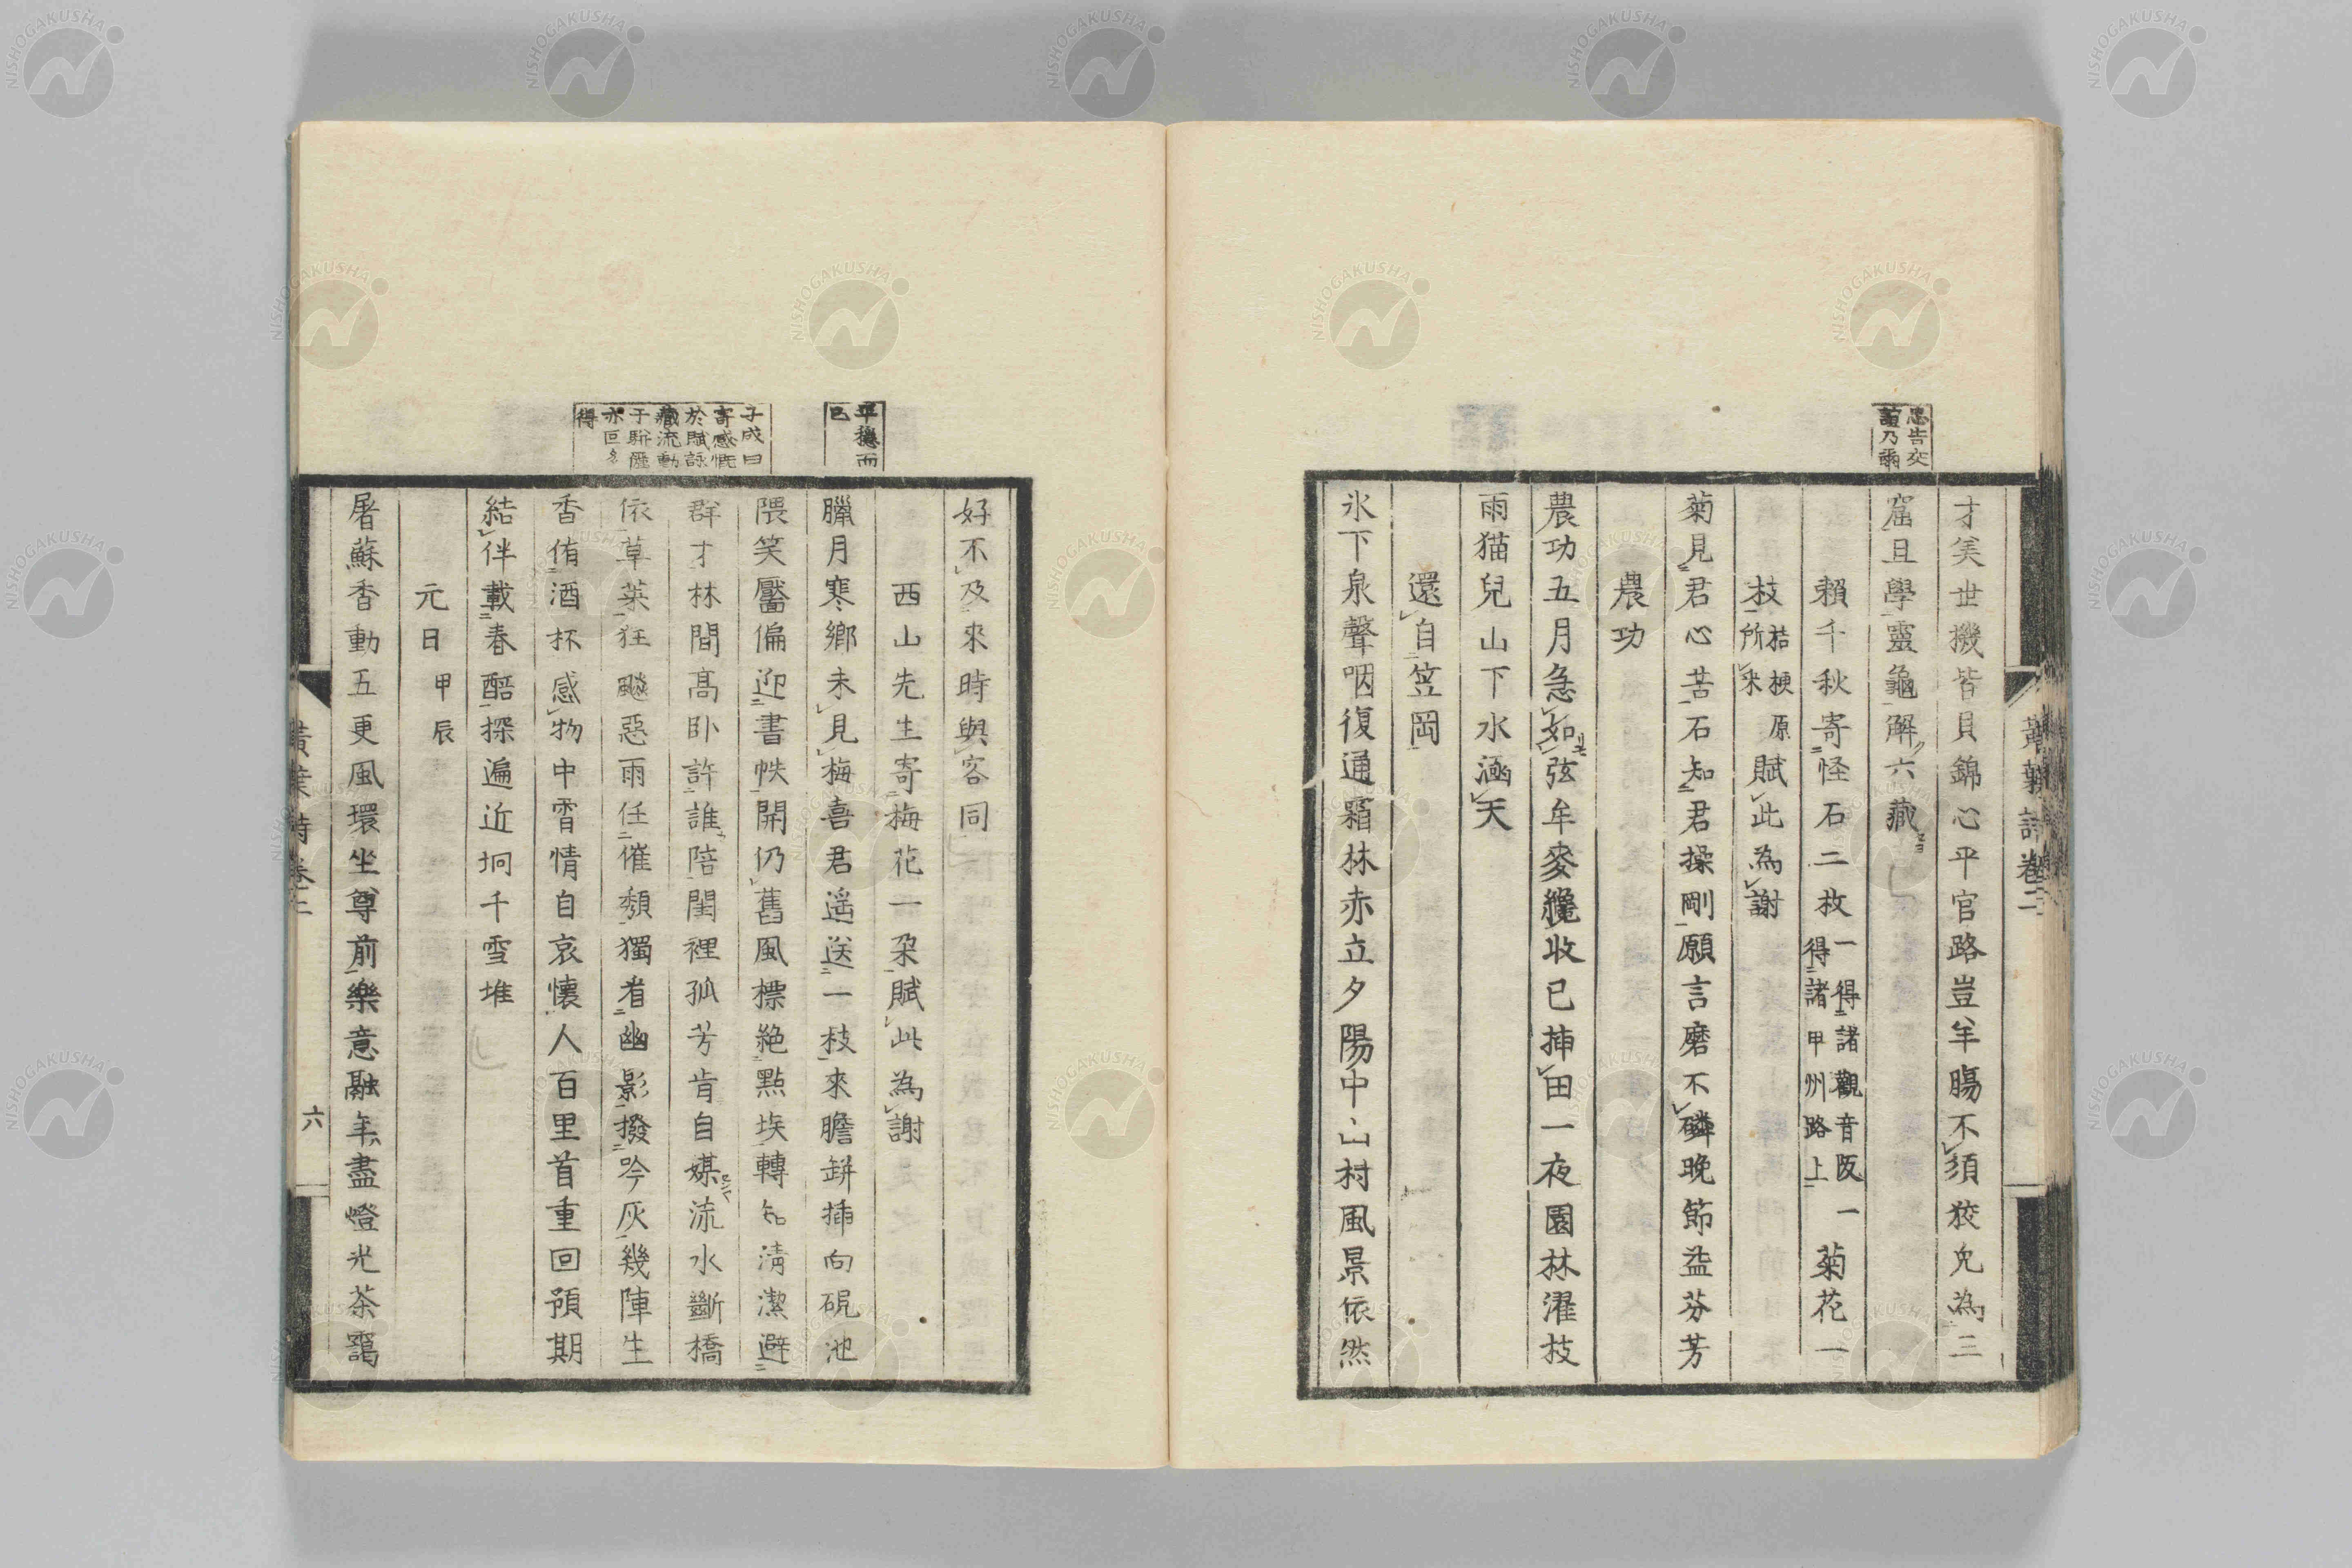 忠告交
誼乃爾
才美世機皆貝錦心平官路豈羊腸不須狡免為三
窟且學靈龜解六藏
賴千秋寄怪石二枚一得諸觀音阪一
得諸甲州路上菊花一
枝桔梗原
所采賦此為謝
菊見君心苦石知君操剛願言磨不磷晚節益芬芳
農功
農功五月急如弦牟麥纔收已挿田一夜園林濯枝
雨猫兒山下水涵天
還自笠岡
氷下泉聲咽復通霜林赤立夕陽中山村風景依然
好不及來時與客同
西山先生寄梅花一朶賦此為謝
平穩而
已
臘月寒鄉未見梅喜君遥送一枝來膽缾挿向硯池
隈笑靨偏迎書帙開仍舊風標絶點埃轉知清潔避
子成曰
寄感慨
於賦詠
藏流動
于駢儷
亦叵多
得
群才林間高卧許誰陪閨裡孤芳肯自媒流水斷橋
依草菜狂飈惡雨任催頽獨看幽影撥吟灰幾陣生
香侑酒杯感物中宵情自哀懷人百里首重回預期
結伴載春醅探遍近坰千雪堆
元日甲辰
屠蘇香動五更風環坐尊前樂意融年盡燈光茶靄
黃葉詩卷二
六